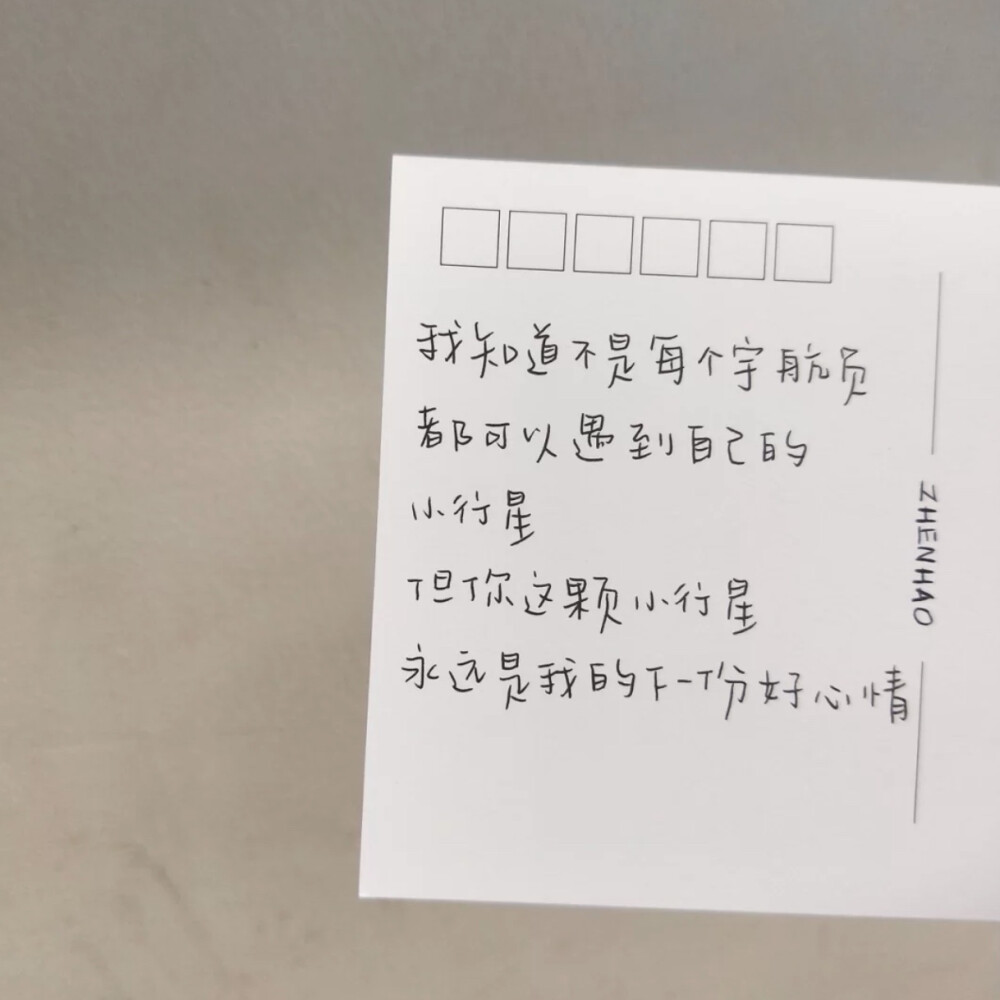 我知道不是每个宇航员
都可以遇到自己的
小行星
但你这颗小行星
永远是我的下一份好心情
ZHENHAO